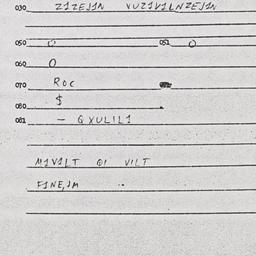 030 Z1ZEJ1N VUZ1V1LNZEJ1N
050 0 051 0
060 0
070 ROC
080 $
081 — QXULIL1
M1V1LT QI VILT
F1NE,JM ..